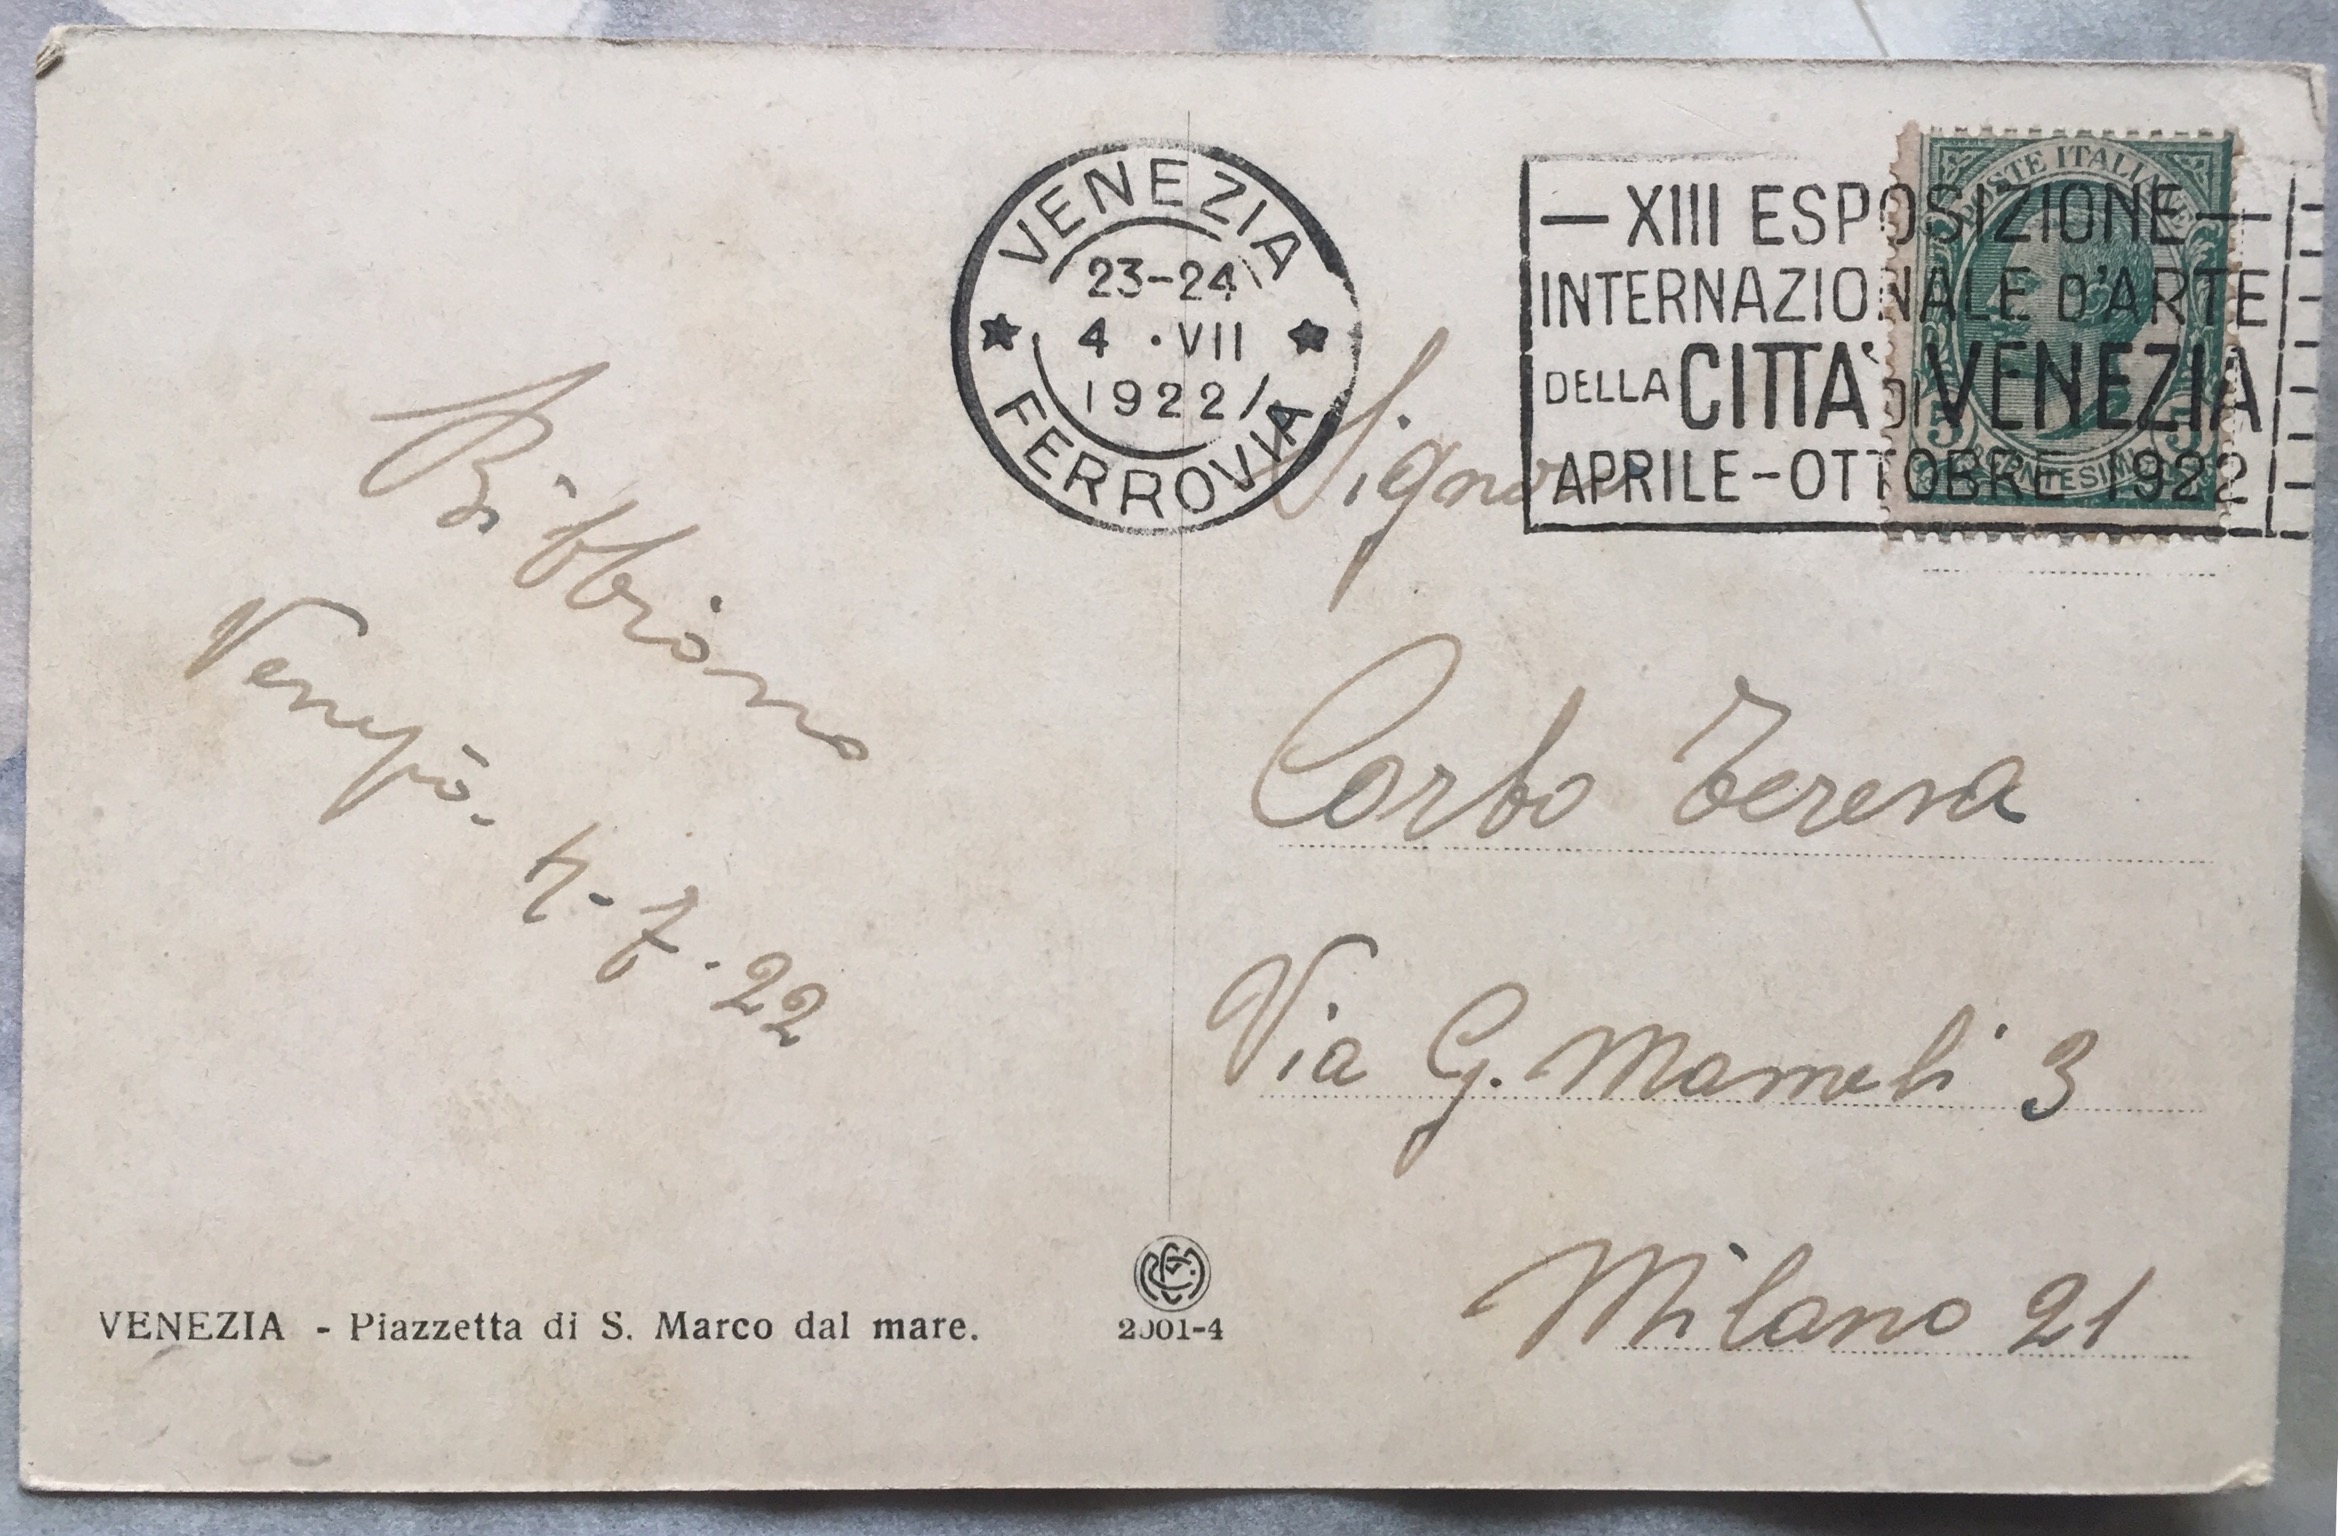 VENEZIA
23-24
4 · VII
1922
FERROVIA
— XIII ESPOSIZIONE —
INTERNAZIONALE D'ARTE
DELLA CITTÀ DI VENEZIA
APRILE - OTTOBRE 1922
POSTE ITALIANE
5 5
CENTESIMI
Bibbiano
4-7-22
Signora
Corbo Teresa
Via G. Mameli 3
Milano 21
VENEZIA - Piazzetta di S. Marco dal mare.
2001-4